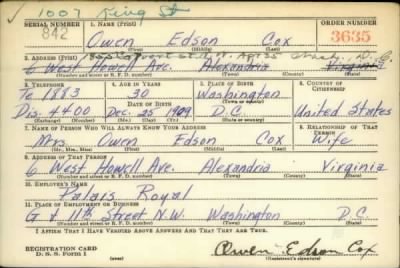 ✓ 1007 King St
SERIAL NUMBER 1. NAME (Print) ORDER NUMBER
842 Owen Edson Cox 3635
(First) (Middle) (Last)
2. ADDRESS (Print)
6 West Howell Ave. Alexandria Virginia
(Number and street or R. F. D. number) (Town) (County) (State)
3. TELEPHONE 4. AGE IN YEARS 5. PLACE OF BIRTH 6. COUNTRY OF CITIZENSHIP
Te 1883 30 Washington
DATE OF BIRTH (Town or county)
Dis. 4400 Dec. 25 1909 D.C. United States
(Exchange) (Number) (Mo.) (Day) (Yr.) (State or country)
7. NAME OF PERSON WHO WILL ALWAYS KNOW YOUR ADDRESS 8. RELATIONSHIP OF THAT PERSON
Mrs Owen Edson Cox Wife
(Mr., Mrs., Miss) (First) (Middle) (Last)
9. ADDRESS OF THAT PERSON
6 West Howell Ave. Alexandria Virginia
(Number and street or R. F. D. number) (Town) (County) (State)
10. EMPLOYER'S NAME
Palais Royal
11. PLACE OF EMPLOYMENT OR BUSINESS
G & 11th Street N.W. Washington D.C.
(Number and street or R. F. D. number) (Town) (County) (State)
I AFFIRM THAT I HAVE VERIFIED ABOVE ANSWERS AND THAT THEY ARE TRUE.
REGISTRATION CARD
D. S. S. Form 1 Owen Edson Cox
(Registrant's signature)